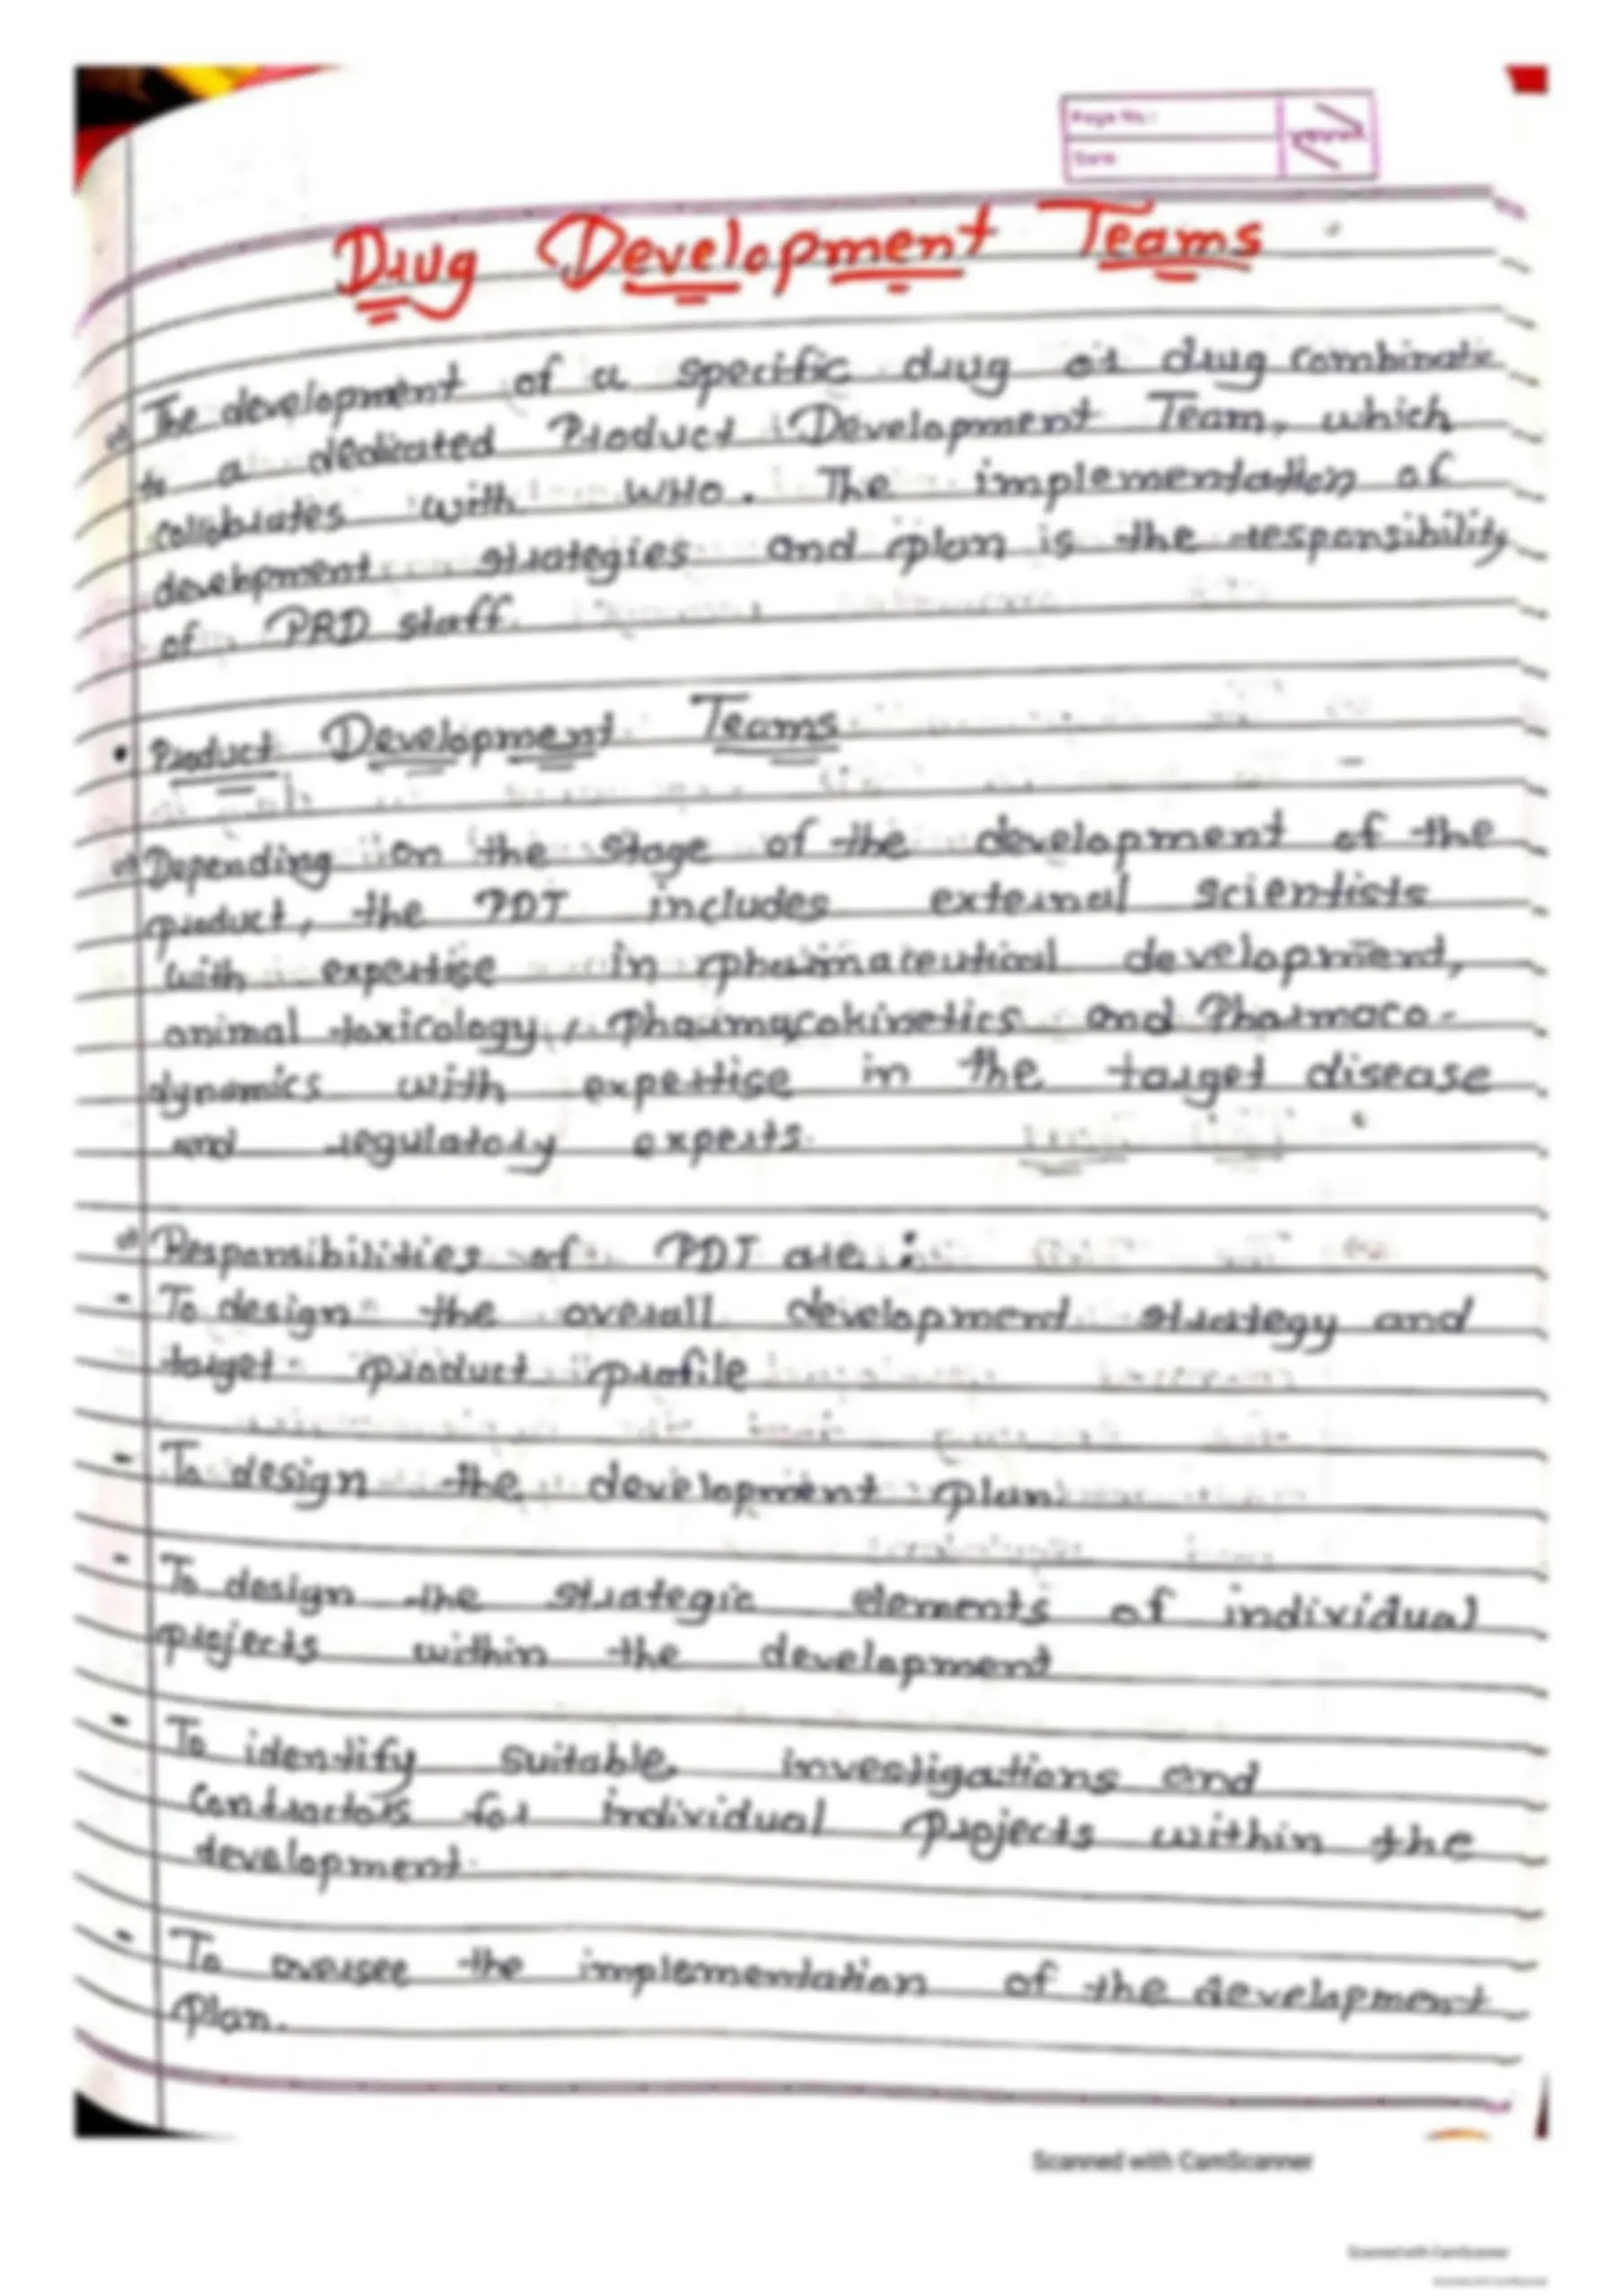 Page No.:
Date:
Drug Development Teams
The development of a specific drug or drug combinatio
to a dedicated Product Development Team, which
collabrates with WHO. The implementation of
development strategies and plan is the responsibility
of PRD staff.
• Product Development Teams
Depending on the stage of the development of the
product, the PDT includes external scientists
with expertise in pharmaceutical development,
animal toxicology, Pharmacokinetics and Pharmaco-
dynamics with expertise in the target disease
and regulatory experts.
Responsibilities of PDT are :
- To design the overall development strategy and
target product profile
- To design the development plan
- To design the strategic elements of individual
projects within the development
- To identify suitable investigations and
contractors for individual projects within the
development.
- To oversee the implementation of the development
plan.
Scanned with CamScanner
Scanned with CamScanner
Scanned with CamScanner